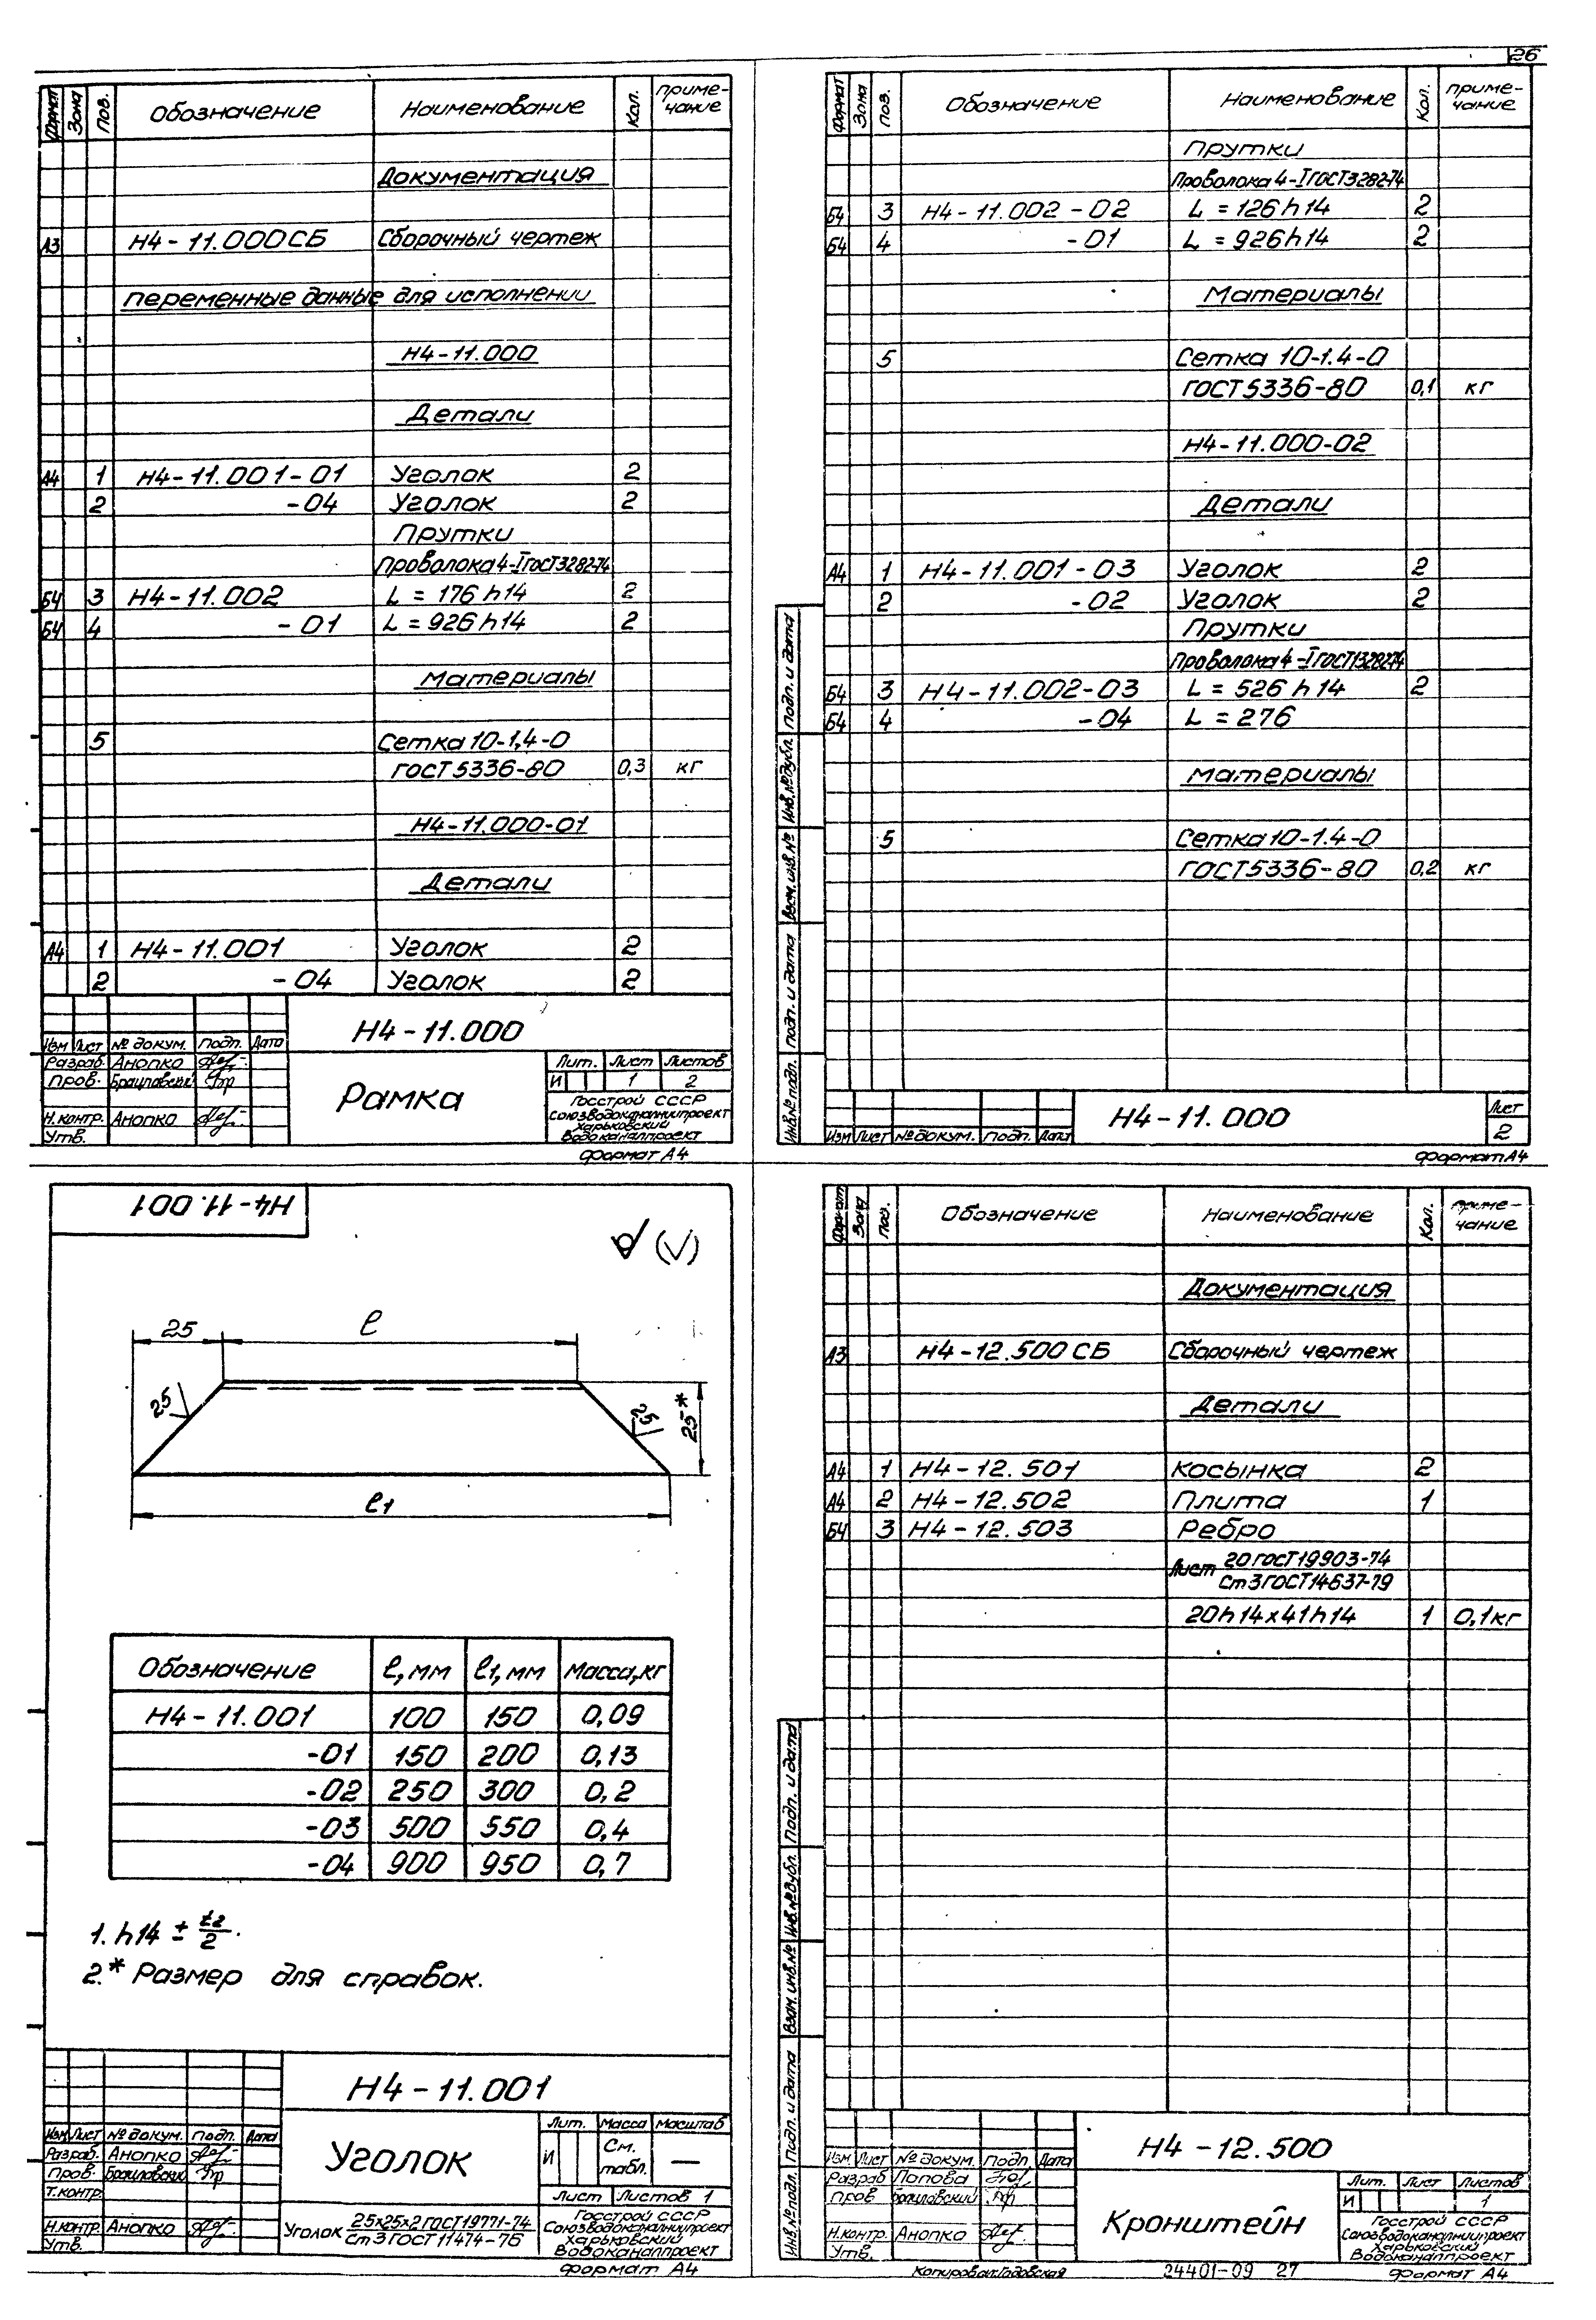 26
Формат Зона Поз. Обозначение Наименование Кол. Приме-
чание
Документация
А3 Н4-11.000СБ Сборочный чертеж
Переменные данные для исполнении
Н4-11.000
Детали
А4 1 Н4-11.001-01 Уголок 2
2 -04 Уголок 2
Прутки
Проволока 4-I ГОСТ3282-74
Б4 3 Н4-11.002 L = 176 h14 2
Б4 4 -01 L = 926 h14 2
Материалы
5 Сетка 10-1,4-0
ГОСТ5336-80 0,3 кг
Н4-11.000-01
Детали
А4 1 Н4-11.001 Уголок 2
2 -04 Уголок 2
Н4-11.000
Изм Лист № докум. Подп. Дата
Разраб. Анопко
Пров. Браиловский
Н.контр. Анопко
Утв.
Рамка
Лит. Лист Листов
И 1 2
Госстрой СССР
Союзводоканалниипроект
Харьковский
Водоканалпроект
Формат А4
Формат Зона Поз. Обозначение Наименование Кол. Приме-
чание
Прутки
Проволока 4-I ГОСТ3282-74
Б4 3 Н4-11.002-02 L = 126 h14 2
Б4 4 -01 L = 926 h14 2
Материалы
5 Сетка 10-1.4-0
ГОСТ5336-80 0,1 кг
Н4-11.000-02
Детали
А4 1 Н4-11.001-03 Уголок 2
2 -02 Уголок 2
Прутки
Проволока 4-I ГОСТ3282-74
Б4 3 Н4-11.002-03 L = 526 h14 2
Б4 4 -04 L = 276
Материалы
5 Сетка 10-1.4-0
ГОСТ5336-80 0,2 кг
Инв.№ подл. Подп. и дата Взам. инв.№ Инв.№ дубл. Подп. и дата
Изм Лист № докум. Подп. Дата
Н4-11.000
Лист
2
Формат А4
Н4-11.001
(√)
25 ℓ
25 25 25*
ℓ1
Обозначение ℓ, мм ℓ1, мм Масса, кг
Н4-11.001 100 150 0,09
-01 150 200 0,13
-02 250 300 0,2
-03 500 550 0,4
-04 900 950 0,7
1. h14 ± t2/2.
2.* Размер для справок.
Н4-11.001
Изм Лист № докум. Подп. Дата
Разраб. Анопко
Пров. Браиловский
Т.контр.
Н.контр. Анопко
Утв.
Уголок
Лит. Масса Масштаб
И См. табл. —
Лист Листов 1
Уголок 25х25х2 ГОСТ19771-74
Ст3 ГОСТ11474-76
Госстрой СССР
Союзводоканалниипроект
Харьковский
Водоканалпроект
Формат А4
Формат Зона Поз. Обозначение Наименование Кол. Приме-
чание
Документация
А3 Н4-12.500 СБ Сборочный чертеж
Детали
А4 1 Н4-12.501 Косынка 2
А4 2 Н4-12.502 Плита 1
Б4 3 Н4-12.503 Ребро
Лист 20 ГОСТ19903-74
Ст3 ГОСТ14637-79
20h14х41h14 1 0,1кг
Инв.№ подл. Подп. и дата Взам. инв.№ Инв.№ дубл. Подп. и дата
Н4-12.500
Изм Лист № докум. Подп. Дата
Разраб Попова
Пров Браиловский
Н.контр. Анопко
Утв.
Кронштейн
Лит. Лист Листов
И 1
Госстрой СССР
Союзводоканалниипроект
Харьковский
Водоканалпроект
Копировал: Годовская 24401-09 27 Формат А4